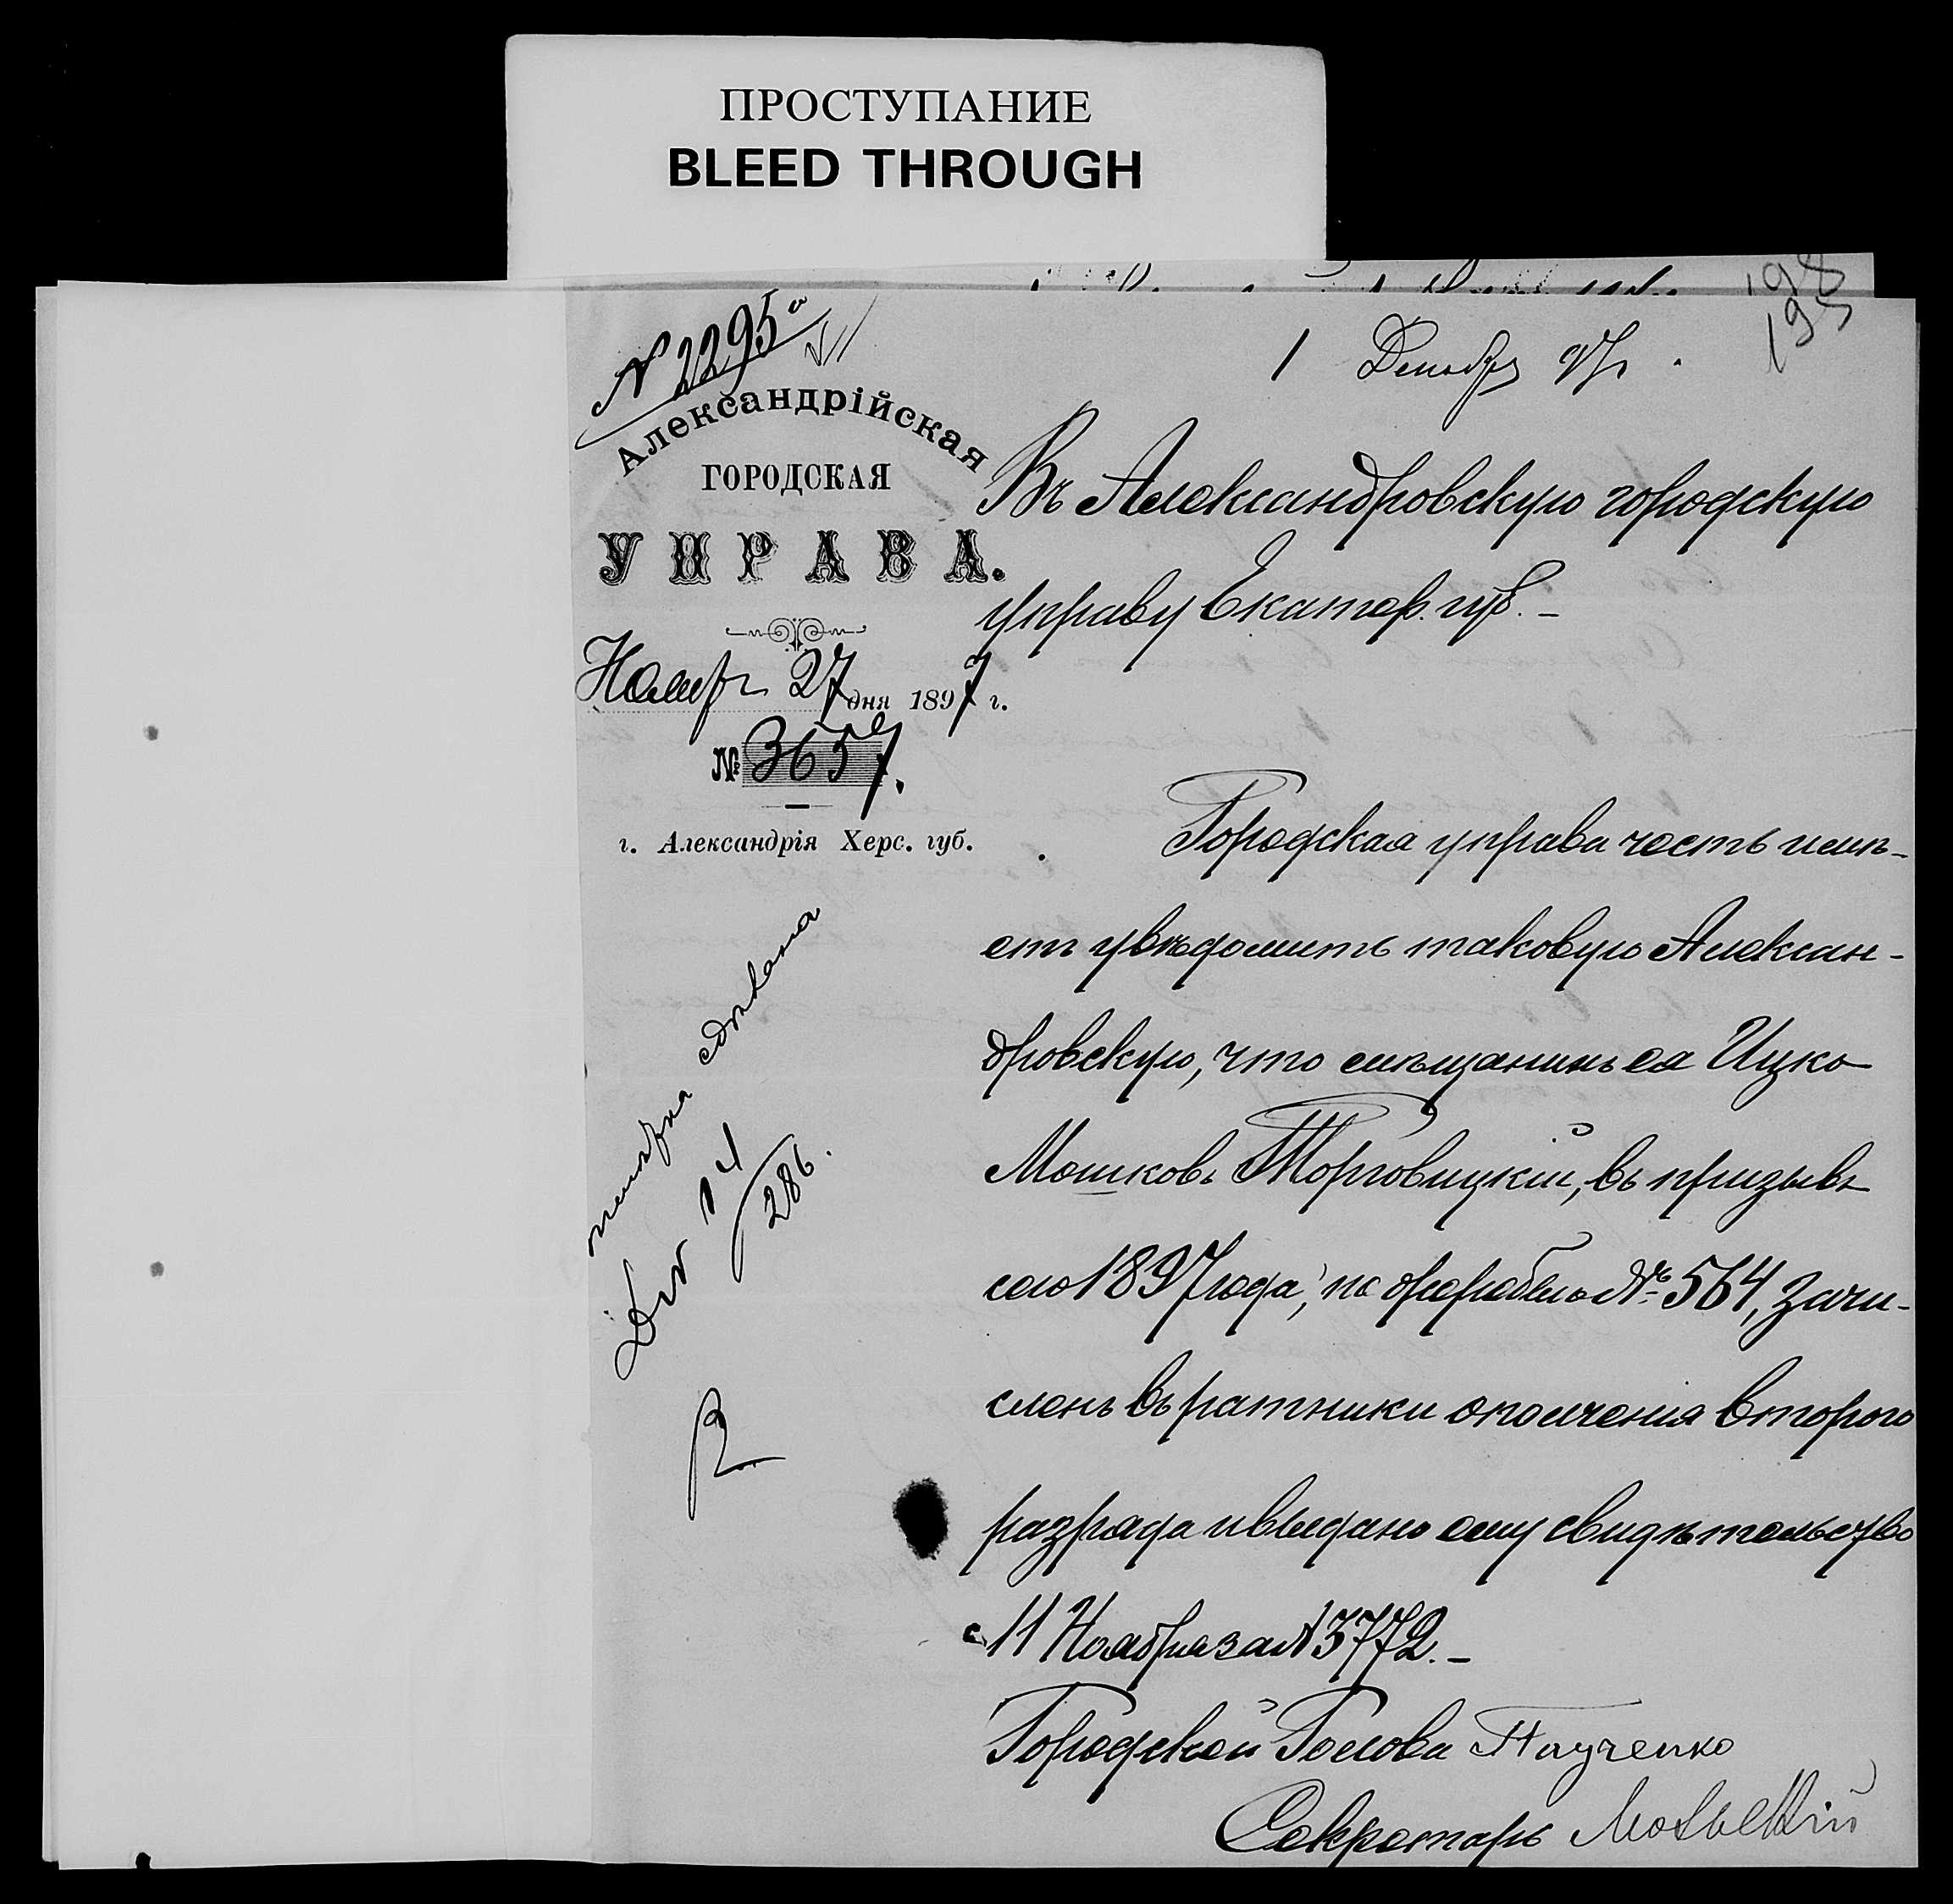 ПРОСТУПАНИЕ
BLEED THROUGH
198
195
№ 2295
1 Декабря 97 г.
Александрійская
ГОРОДСКАЯ
УПРАВА.
Ноября 27 дня 1897 г.
№ 3657.
г. Александрія Херс. губ.
Въ Александровскую городскую
управу Екатер. губ. –
Городская управа честь имѣ-
етъ увѣдомить таковую Алексан-
дровскую, что мѣщанинъ ея Ицко
Мошковъ Торговицкій, въ призывъ
сего 1897 года, по жеребью № 564, зачи-
сленъ въ ратники ополченія второго
разряда и выдано ему свидѣтельство
11 Ноября за № 3772. –
Городской Голова
Секретарь
отмѣтка сдѣлана
14
286.